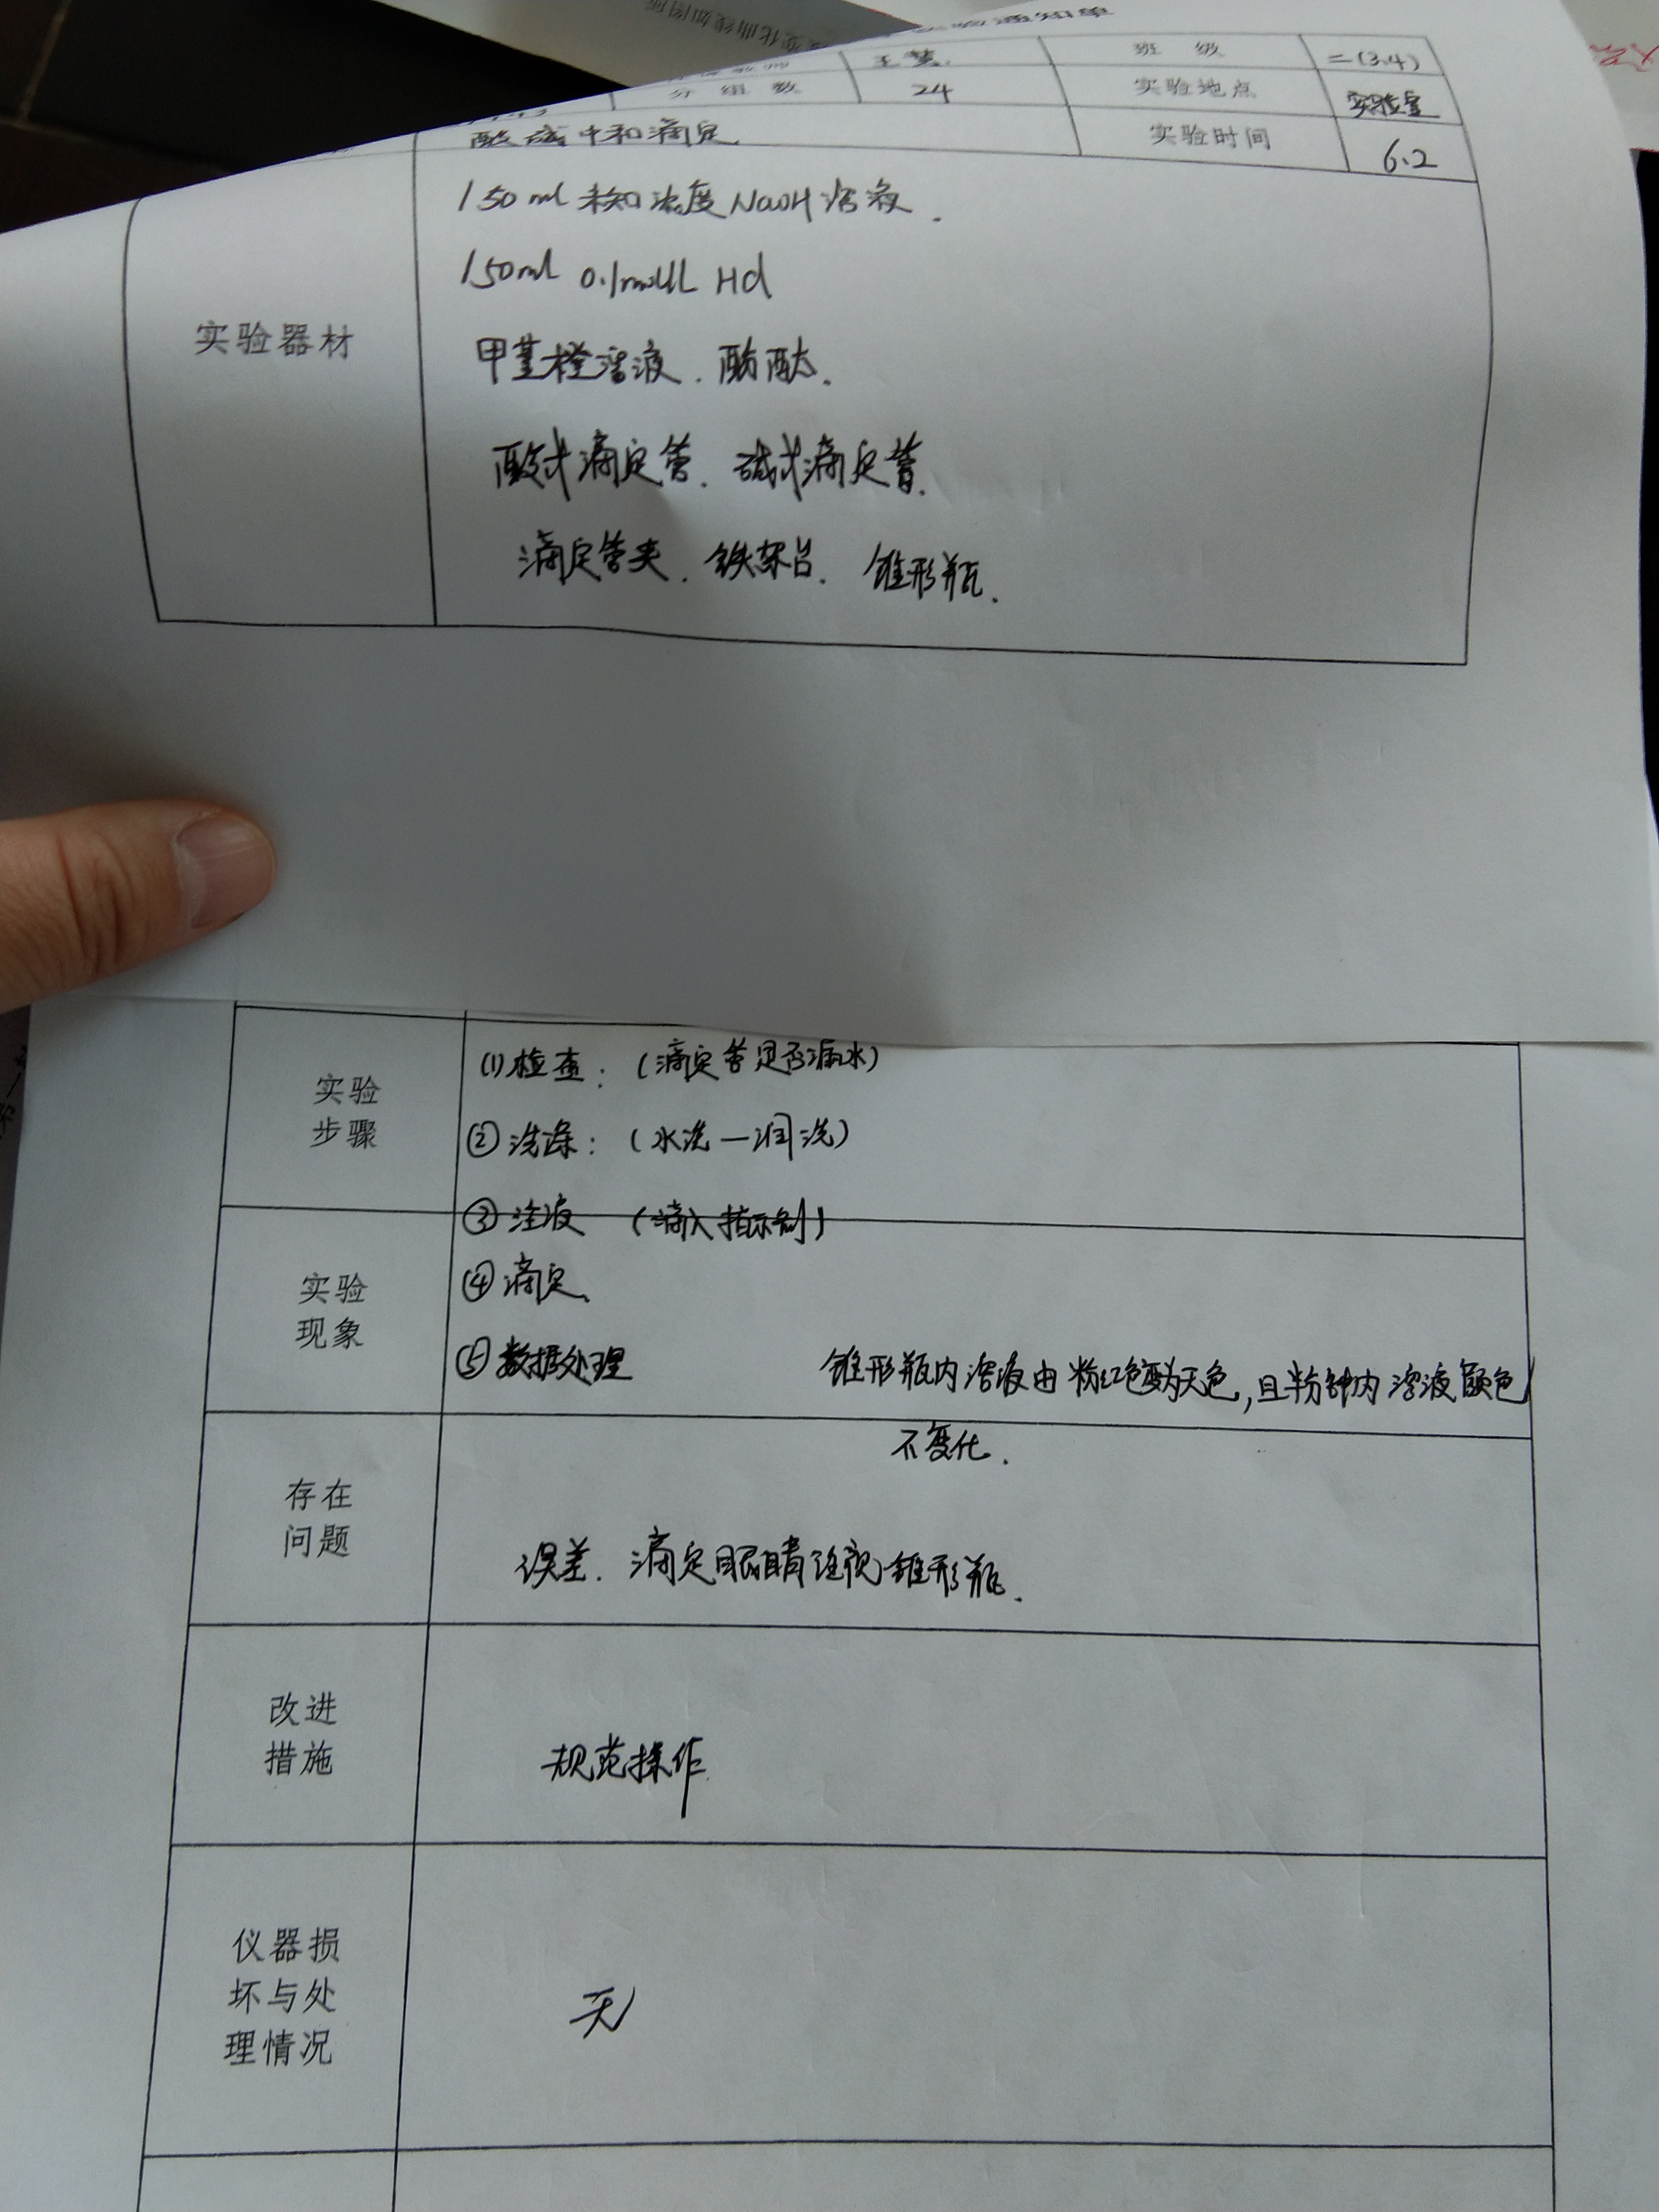 变化曲线如图所
实验通知单
王梦 班 级 二(3.4)
分 组 数 24 实验地点 实验室
酸碱中和滴定 实验时间 6.2
实验器材
150ml 未知浓度NaOH溶液.
150ml 0.1mol/L HCl
甲基橙溶液. 酚酞.
酸式滴定管. 碱式滴定管.
滴定管夹. 铁架台. 锥形瓶.
实验
步骤
(1)检查:(滴定管是否漏水)
②洗涤:(水洗—润洗)
③注液 (滴入指示剂)
实验
现象
④滴定、
⑤数据处理 锥形瓶内溶液由粉红色变为无色,且半分钟内溶液颜色
不变化.
存在
问题
误差. 滴定眼睛注视锥形瓶.
改进
措施
规范操作
仪器损
坏与处
理情况
无